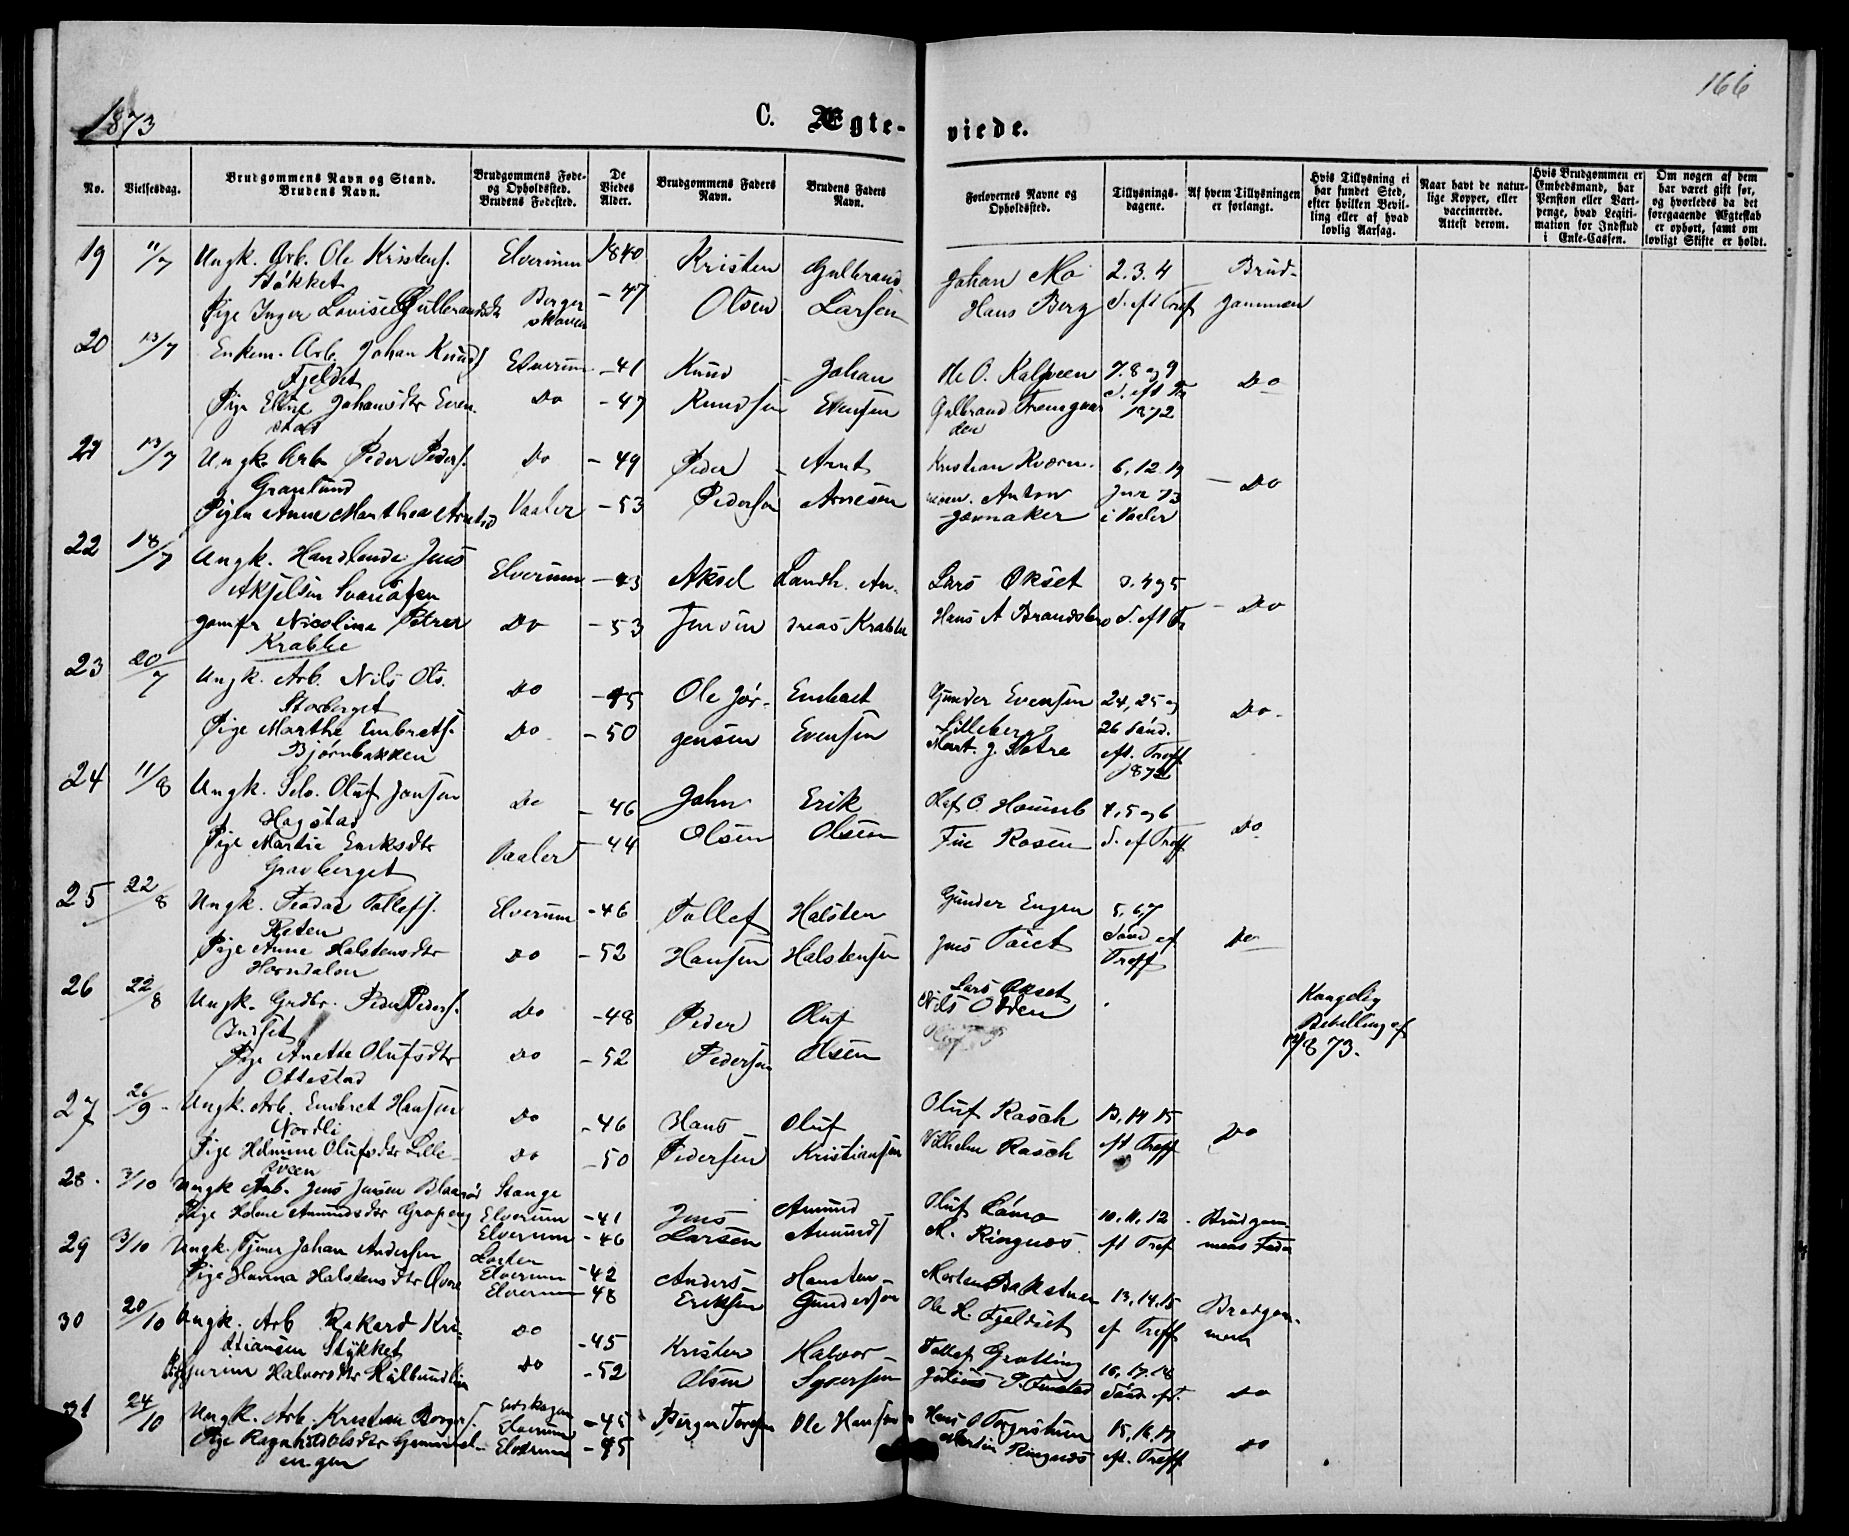 1873
C. Ægte-
viede.
166
No.
Vielsesdag.
Brudgommens Navn og Stand.
Brudens Navn.
Brudgommens Føde-
og Opholdssted.
Brudens Fødested.
De
Viedes
Alder.
Brudgommens Faders
Navn.
Brudens Faders
Navn.
Forlovernes Navne og
Opholdssted.
Tillysnings-
dagene.
Af hvem Tillysningen
er forlangt.
Hvis Tillysning ei
har fundet Sted,
efter hvilken Bevil-
ling eller af hvad
lovlig Aarsag.
Naar havt de natur-
lige Kopper, eller
vaccinerede.
Attest derom.
Hvis Brudgommen er
Embedsmand, har
Pension eller Vart-
penge, hvad Legiti-
mation for Indskud
i Enke-Cassen.
Om nogen af dem
har været gift før,
og hvorledes da det
foregaaende Ægteskab
er ophørt, samt om
lovligt Skifte er holdt.
19 11/7 Ungk. Arb. Ole Kristens. Elverum 1840 Kristen Gulbrand Johan Mo 2. 3. 4 Brud-
Støkket
Pige Inger Lovise Gulbrandsdtr Berger skoven - 47 Olsen Larsen Hans Berg S. eft Tref gommen
20 13/7 Enkem. Arb. Johan Knuds Elverum - 41 Knud Johan Ole O. 7. 8 og 9 Do
Fjeldet
Pige Eline Johansdtr Even- Do - 47 Knudsen Evensen Gulbrand Fremgaar S. eft Tr
stad den 1872
21 13/7 Ungk. Arb. Peder Peders. Do - 49 Peder Arnt Kristian Kværn- 6, 12, 19 Do
Granlund
Pigen Anne Marthea Arntsd Vaaler - 53 Pedersen Arnesen Anton Juni 73
i Vaaler
22 18/7 Ungk. Handlende Jens Elverum - 43 Aksel Landh. An- Lars Okset 3. 4 og 5 Do
Akselsen
Jomfr Nicoline Petrea Do - 53 Jensen dreas Krabbe Hans A Brandsberg S. eft Tr
Krabbe
23 20/7 Ungk. Arb. Nils Ols. Do - 45 Ole Jør- Embret Gunder Evensen 24, 25 og Do
Storberget Lilleberg 26 Sønd.
Pige Marthe Embrets. Do - 50 gensen Evensen Mart. J. Sætre eft. Treff
Bjørnbakken 1872
24 11/8 Ungk. Selv. Oluf Jonsen Do - 46 John Erik 4, 5 og 6 Do
Hagstad
Pige Martia Eriksdtr Vaaler - 44 Olsen Olsen Rosen S. ef Treff
Gravberget
25 22/8 Ungk. Peder Tollefs. Elverum - 46 Tollef Halsten Gunder Engen 5, 6, 7 Do
Pige Anne Halstensdtr Do - 52 Hansen Halstensen Jens Sønd ef
Horndalen Treff
26 22/8 Ungk. Grdbr. Peder Peders. Do - 48 Peder Oluf Lars Okset Kongelig
Indset Nils Bevilling af
Pige Anette Olufsdtr Do - 52 Pedersen Olsen 873.
Ottestad
27 26/9 Ungk. Arb. Embret Hansen Do - 46 Hans Oluf Oluf Rasch 13, 14, 15 Do
Nordli
Pige Helmine Olufsdtr Lille- Do - 50 Pedersen Kristiansen Vilhelm Rasch eft Treff
sveen
28 3/10 Ungk Arb. Jens Jensen Stange - 41 Jens Amund Oluf 10, 11, 12 Brudgom-
Pige Helene Amundsdtr Elverum - 46 Larsen Amunds M. Ringnæs eft Tref mens Fader
29 3/10 Ungk. Johan Andersen Elverum - 42 Anders Halsten Morten Bakstuen 13, 14, 15 Brudgom-
Løiten
Pige Hanna Halstensdtr Elverum 48 Eriksen Gundersen Ole H. Fjeldset ef Treff men
30 20/10 Ungk. Arb Rikard Kri- Do - 45 Kristen Halvor Tollef Grøtting 16, 17, 18 Do
stiansen Støkket
Pige Gurine Halvorsdtr Do - 52 Olsen Syversen Julius Sønd. eft.
31 24/10 Ungk. Arb. Kristian Borgers. Elverum - 45 Birger Toresen Ole Hansen Hans O 15, 16, 17 Do
Pige Ragnhild Olsdtr Elverum - 45 Martin Ringnæs eft. Treff
engen